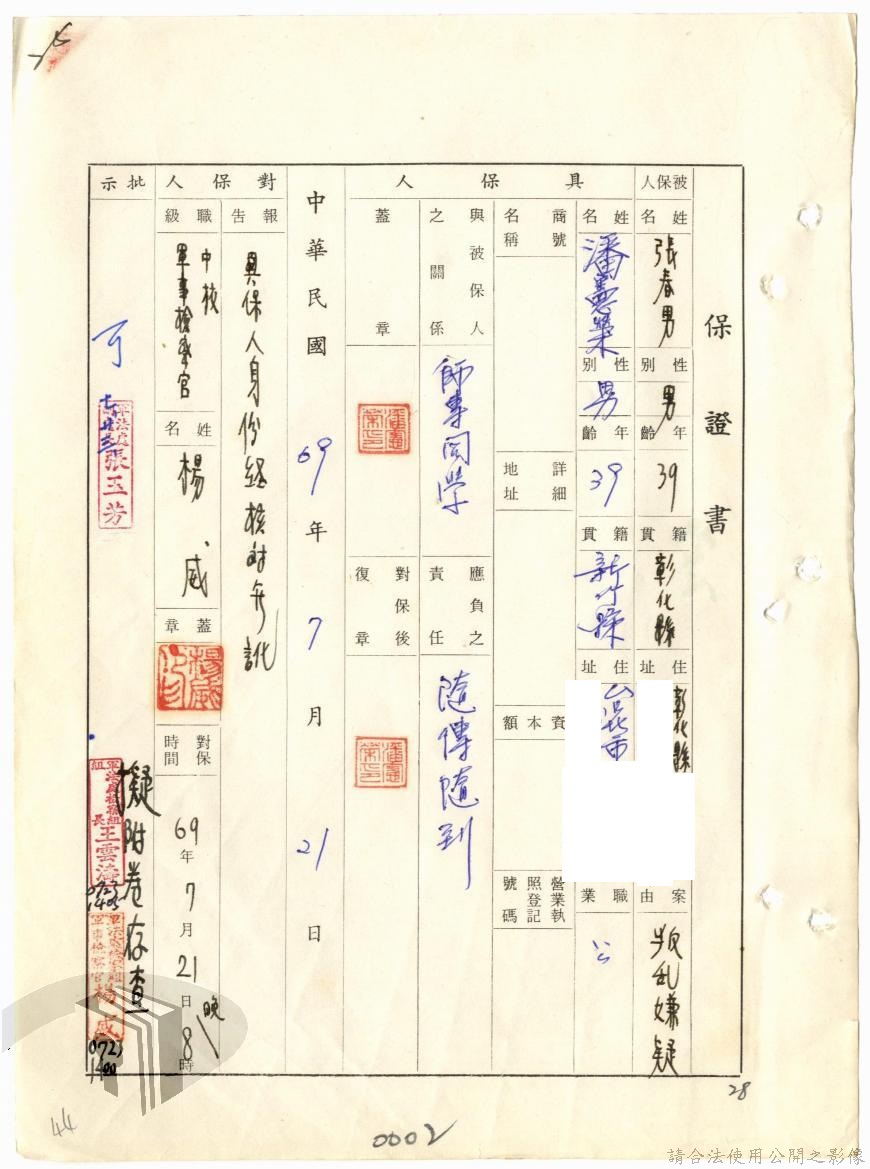 保證書
被保人
姓名 張春男
性別 男
年齡 39
籍貫 彰化縣
住址 彰化縣
案由 叛乱嫌疑
具保人
姓名 潘憲榮
性別 男
年齡 39
籍貫 新竹縣
住址 台北市
職業 公
商號名稱
詳細地址
資本額
營業執照登記號碼
與被保人之關係 師專同學
應負之責任 隨傳隨到
蓋章
潘憲榮印
對保後復章
潘憲榮印
中華民國 69 年 7 月 21 日
對保人
報告 具保人身份經核對無訛
職級 中校 軍事檢察官
姓名 楊威
蓋章 楊威
對保時間 69 年 7 月 21 日 晚 8 時
批示
可
張玉芳
擬附卷存查
組長 王雲濤
0723
1405
軍事檢察官 楊威
0723
1400
28
44
0002
請合法使用公開之影像